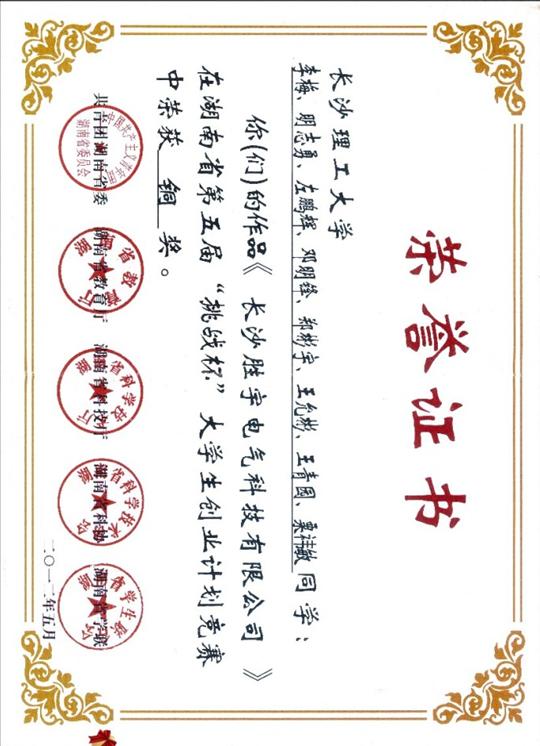 荣誉证书
长沙理工大学
李梅、明志勇、左鹏辉、邓明锋、郑彬宇、王允彬、王青园、粟祎敏同学：
你(们)的作品《长沙胜宇电气科技有限公司》
在湖南省第五届“挑战杯”大学生创业计划竞赛
中荣获 铜 奖。
共青团湖南省委 湖南省教育厅 湖南省科技厅 湖南省科协 湖南省学联
二〇一二年五月